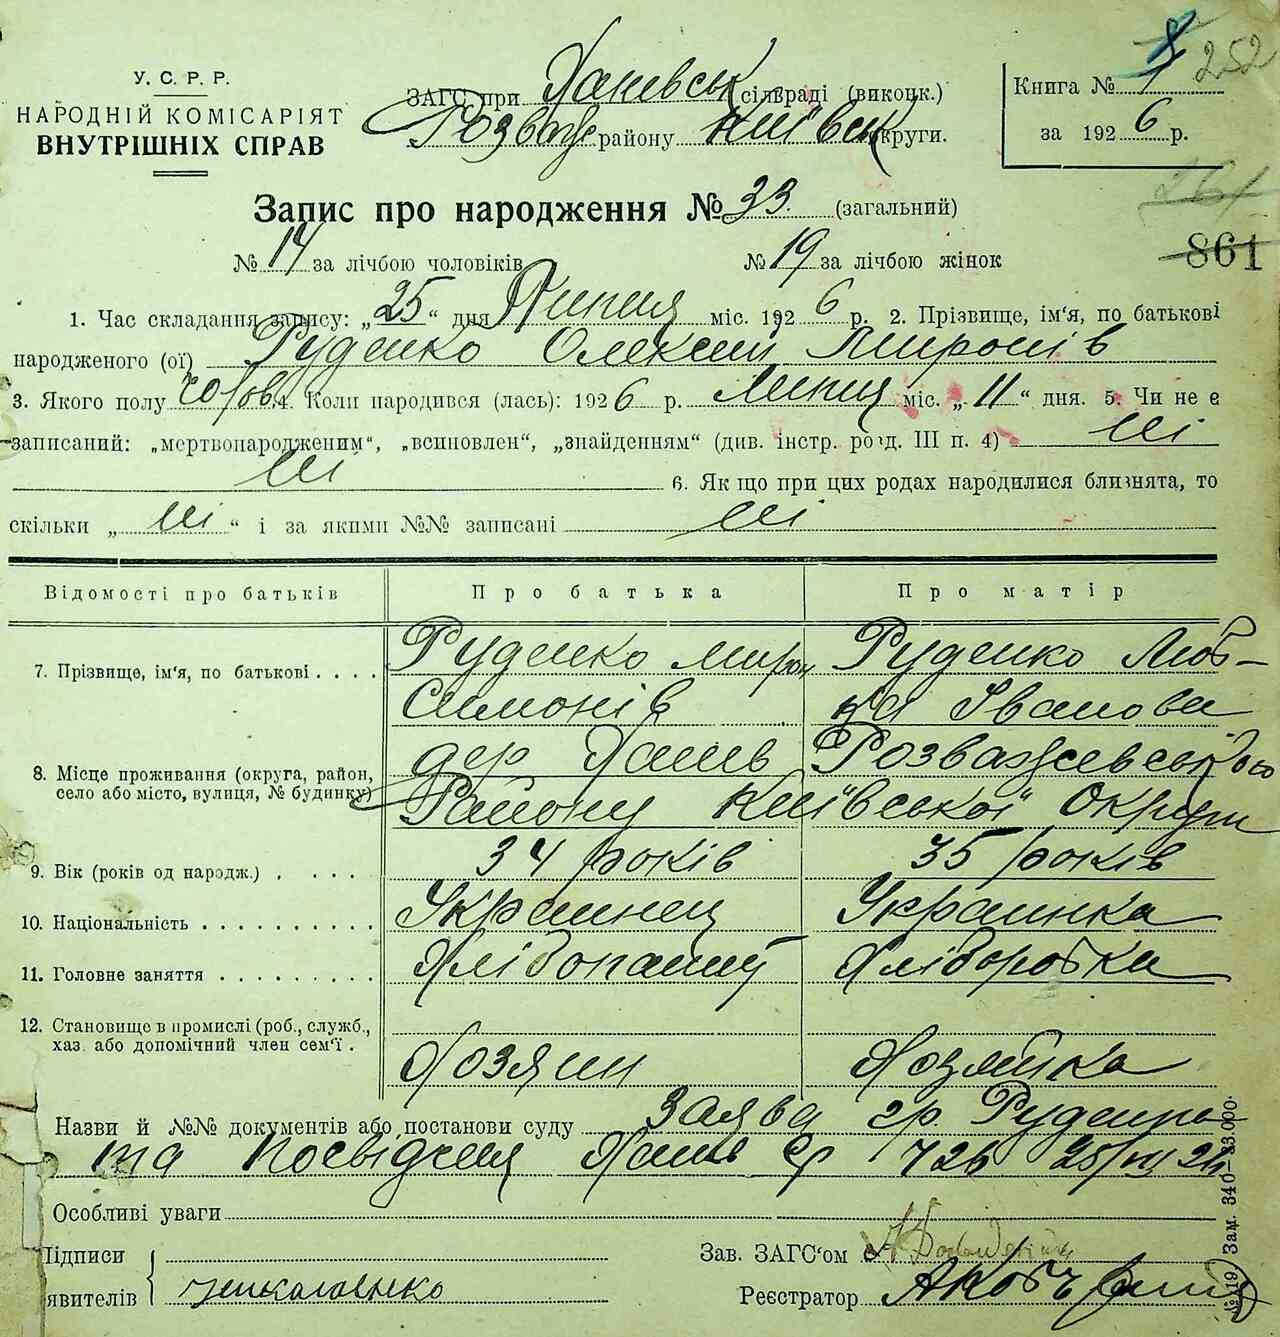 8
252
У. С. Р. Р.
НАРОДНІЙ КОМІСАРІЯТ
ВНУТРІШНІХ СПРАВ
ЗАГС при Ханевськ сільраді (викоцк.)
Розваж району Київськ округи.
Книга № 1
за 1926 р.
Запис про народження № 33. (загальний)
261
861
№ 14 за лічбою чоловіків № 19 за лічбою жінок
1. Час складання запису: „25“ дня Липня міс. 1926 р. 2. Прізвище, ім‘я, по батькові
народженого (ої) Руденко Олексий Миронів
3. Якого полу чолов. 4. Коли народився (лась): 1926 р. Липня міс. „11“ дня. 5. Чи не є
записаний: „мертвонародженим“, „всиновлен“, „знайденням“ (див. інстр. розд. III п. 4) ні
ні 6. Якщо при цих родах народилися близнята, то
скільки „ні“ і за якими №№ записані ні
Відомості про батьків Про батька Про матір
7. Прізвище, ім‘я, по батькові . . . . Руденко Мирон Руденко Люб-
Симонів ка Іванова
8. Місце проживання (округа, район, село або місто, вулиця, № будинку) дер Ханів Розважевського
Району Київської Округи
9. Вік (років од народж.) . . . . 34 років 35 років
10. Національність . . . . . . . . . . Украинец Украинка
11. Головне заняття . . . . . . . . . Хлібопашц Хліборобка
12. Становище в промислі (роб., служб.,
хаз. або допомічний член сем‘ї . Хозяин Хозяйка
Назви й №№ документів або постанови суду Заява гр. Руденко
та Посвідчия Ханів 726
Особливі уваги
Підписи
явителів
Зав. ЗАГС‘ом
Реєстратор
№ 19. Зам. 340—33.000.